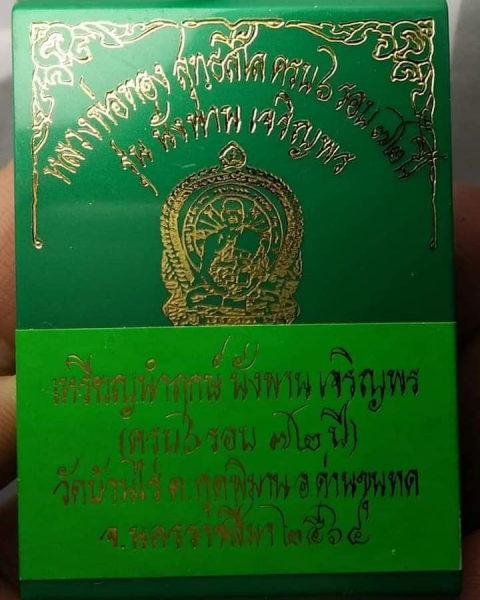 หลวงพ่อทอง สุทธสีโล ครบ ๖ รอบ ๗๒ ปี
รุ่น นั่งพาน เจริญพร
เหรียญนำฤกษ์ นั่งพาน เจริญพร
(ครบ ๖ รอบ ๗๒ ปี)
วัดบ้านไร่ ต.กุดพิมาน อ.ด่านขุนทด
จ.นครราชสีมา ๒๕๖๔